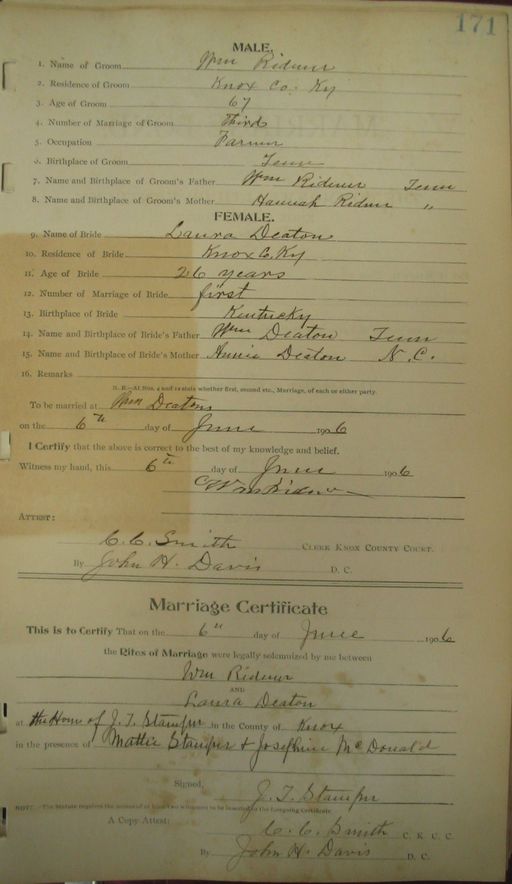 171
MALE.
1. Name of Groom Wm Ridener
2. Residence of Groom Knox Co. Ky
3. Age of Groom 67
4. Number of Marriage of Groom Third
5. Occupation Farmer
6. Birthplace of Groom Tenn
7. Name and Birthplace of Groom's Father Wm Ridener Tenn
8. Name and Birthplace of Groom's Mother Hannah Ridener "
FEMALE.
9. Name of Bride Laura Deaton
10. Residence of Bride Knox Co, Ky
11. Age of Bride 26 years
12. Number of Marriage of Bride first
13. Birthplace of Bride Kentucky
14. Name and Birthplace of Bride's Father Wm Deaton Tenn
15. Name and Birthplace of Bride's Mother Annie Deaton N.C.
16. Remarks
N. B.—At Nos. 4 and 12 state whether first, second etc., Marriage, of each or either party.
To be married at Wm Deatons
on the 6th day of June 1906
I Certify that the above is correct to the best of my knowledge and belief.
Witness my hand, this 6th day of June 1906
Wm Ridener
ATTEST:
C. C. Smith CLERK KNOX COUNTY COURT.
By John H. Davis D. C.
Marriage Certificate
This is to Certify That on the 6th day of June 1906
the Rites of Marriage were legally solemnized by me between
Wm Ridener
AND
Laura Deaton
at the Home of J. T. Stamper in the County of Knox
in the presence of Mattie Stamper & Josephine McDonald
Signed, J. T. Stamper
NOTE.—The Statute requires the names of at least two witnesses to be inserted in the foregoing Certificate
A Copy Attest: C. C. Smith C. K. C. C.
By John H. Davis D. C.